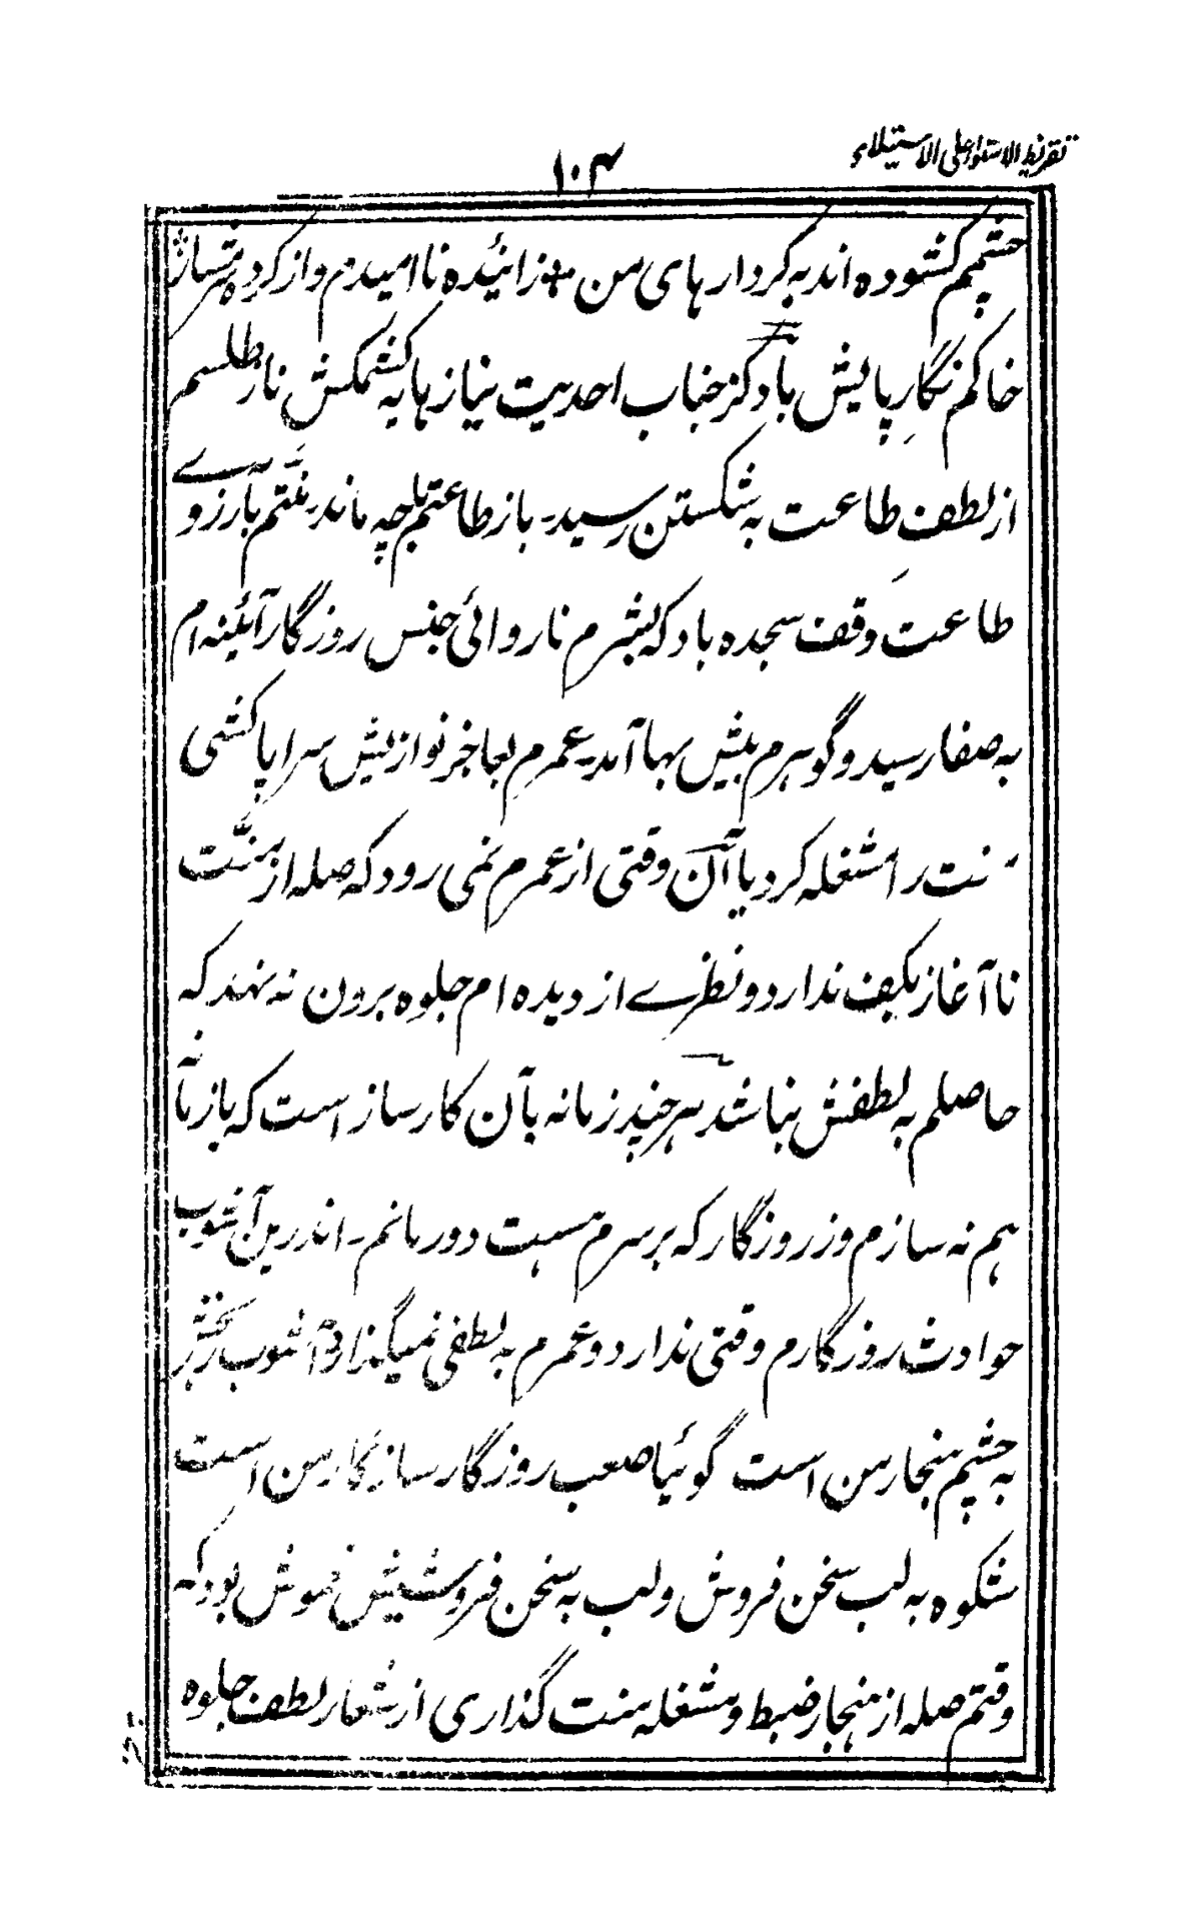 تقریظ الاستواء علی الاستیلاء
۱۰۴
چشمم کشوده اند به کردار های من زائیده ناامیدم و از کرده
خاکم نگارِ پایش باد کز جناب احدیت نیاز ها به کشمکش ناز طلسم
از لطفِ طاعت به شکستن رسید۔ باز طاعتم بلچه ماند منتم بآرزوے
طاعت وقف سجده باد که بشرم ناروائی جنس روزگار آئینه ام
به صفا رسید و گوهرم بیش بها آمد۔ عمرم بعاجز نوازیش سراپا کشی
منت را مشغله کرد یا آن وقتی از عمرم نمی رود که صله از منّت
نا آغاز بکف ندارد و نظرے از دیده ام جلوه برون نه نهد که
حاصلم به لطفش نباشد هر چند زمانه بآن کارساز است که باز بآن
هم نه سازم وز روزگار که بر سرم هست دور مانم۔ اندرین آشوب
حوادث روزگارم وقتی ندارد و عمرم به لطفی نمیگذارد آشوب
به چشم هنجار من است گوئیا صعب روزگار سازگار من است
شکوه به لب سخن فروش و لب به سخن فروشیش خموش بود که
وقتم صله از هنجار ضبط و مشغله منت گذاری از شعار لطف جلوه